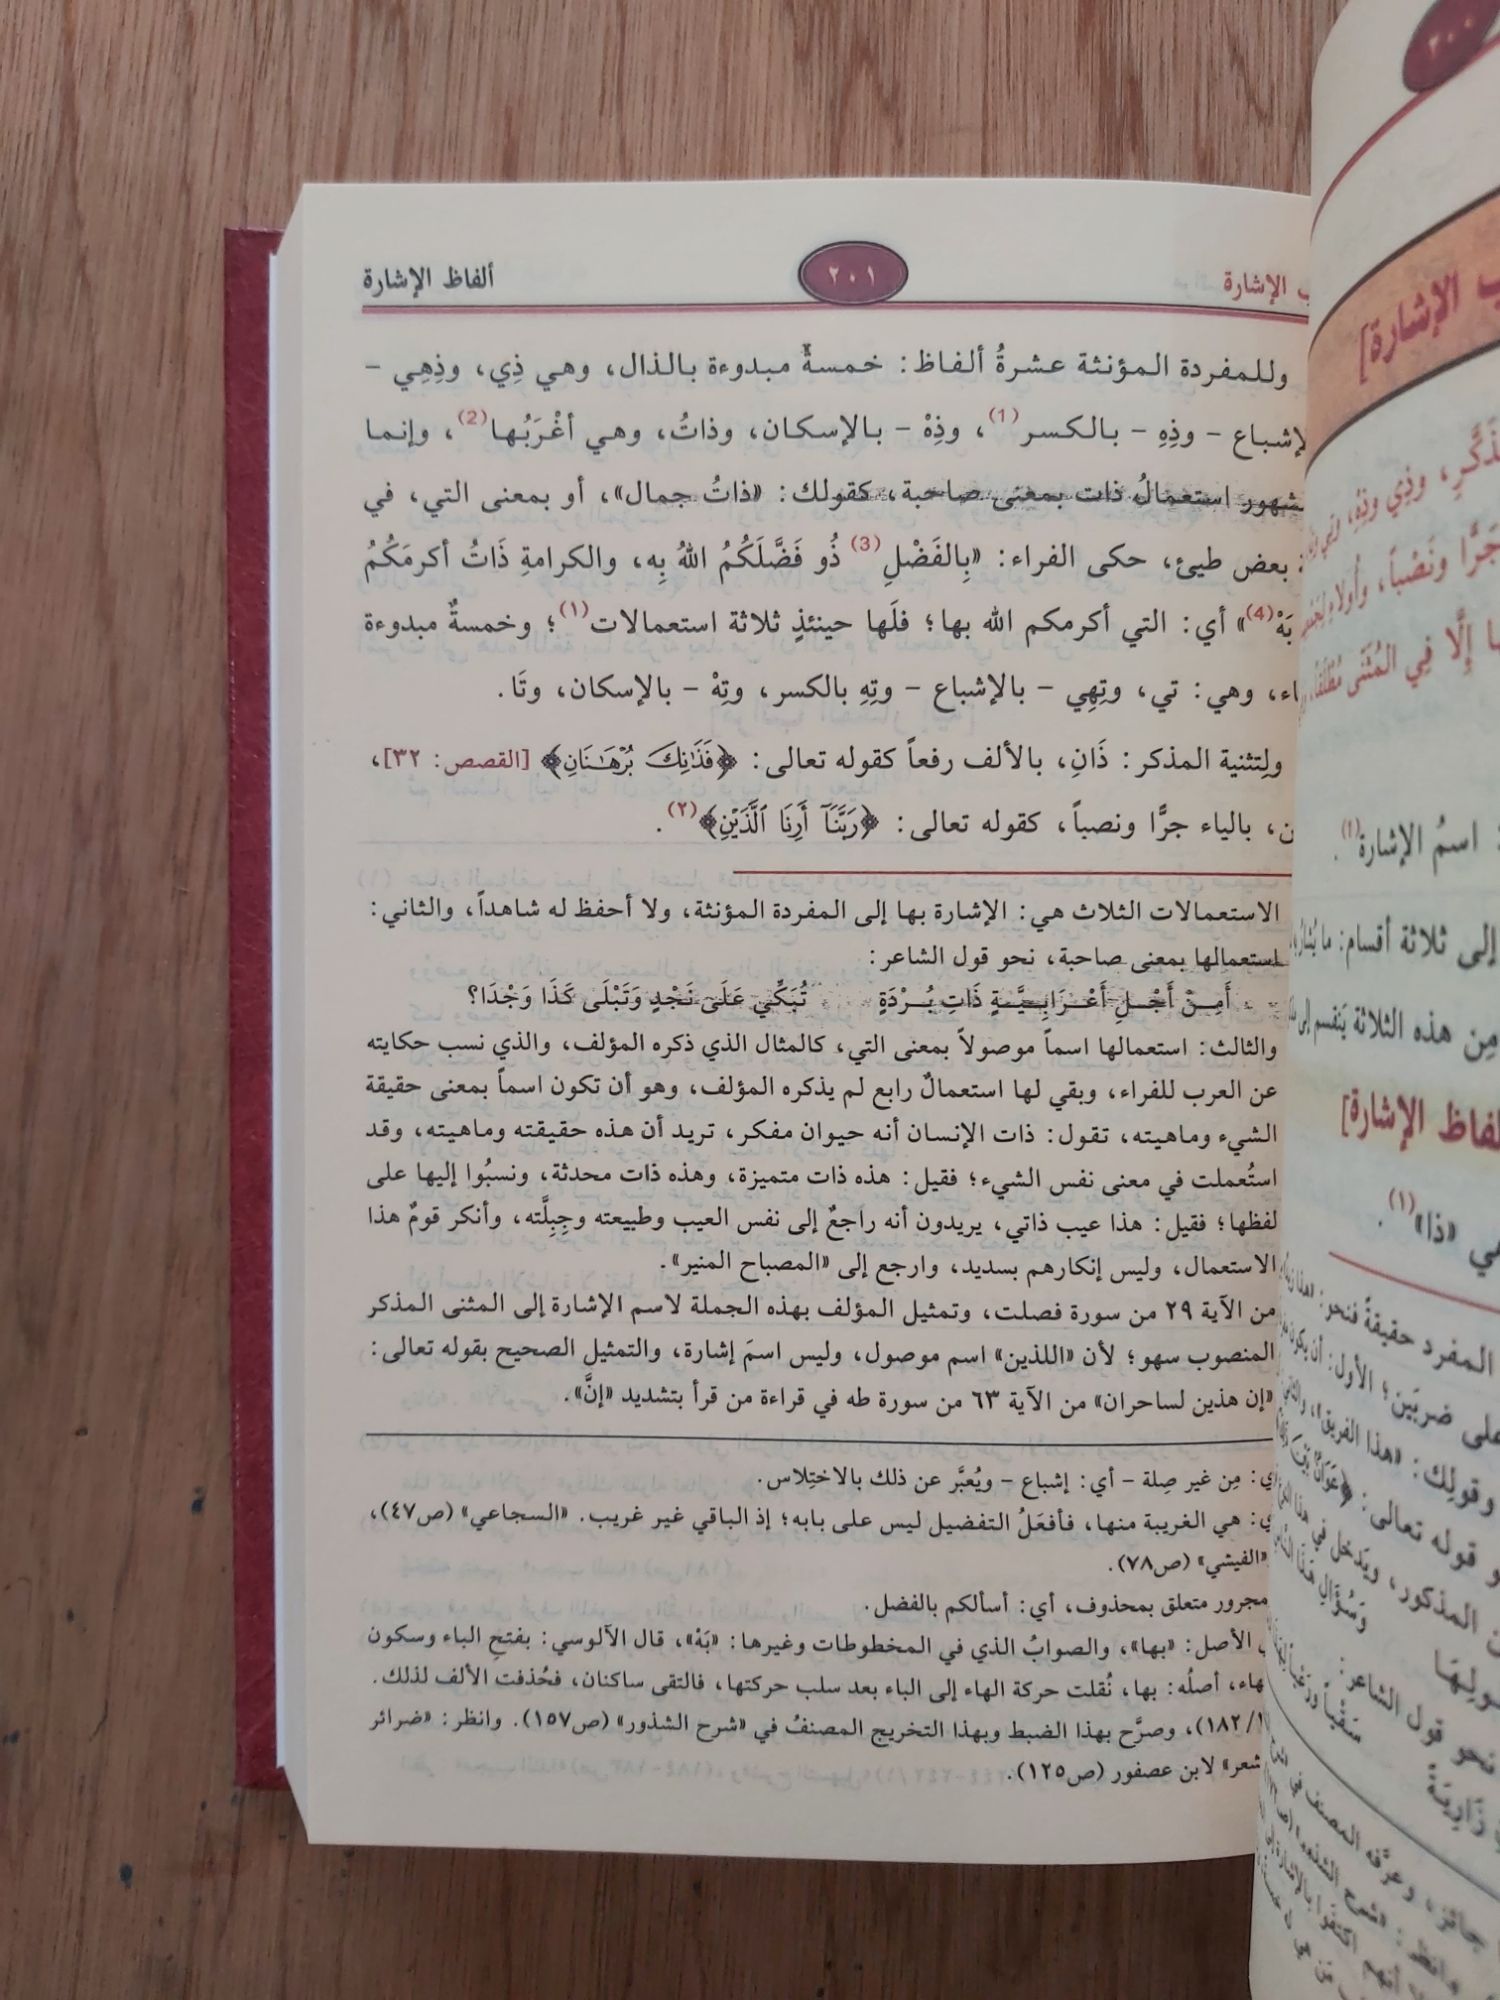 الإشارة ٢٠١ ألفاظ الإشارة
وللمفردة المؤنثة عشرةُ ألفاظ: خمسةٌ مبدوءة بالذال، وهي ذِي، وذِهِي -
لإشباع - وذِهِ - بالكسر(1)، وذِهْ - بالإسكان، وذاتُ، وهي أغْرَبُها(2)، وإنما
شهور استعمالُ ذات بمعنى صاحبة، كقولك: «ذاتُ جمال»، أو بمعنى التي، في
بعض طيئ، حكى الفراء: «بِالفَضْلِ(3) ذُو فَضَّلَكُمُ اللهُ بِه، والكرامةِ ذَاتُ أكرمَكُمُ
بَهْ(4)» أي: التي أكرمكم الله بها؛ فلَها حينئذٍ ثلاثة استعمالات(١)؛ وخمسةٌ مبدوءة
اء، وهي: تي، وتِهِي - بالإشباع - وتِهِ بالكسر، وتِهْ - بالإسكان، وتَا.
ولِتثنية المذكر: ذَانِ، بالألف رفعاً كقوله تعالى: ﴿فَذَٰنِكَ بُرْهَٰنَانِ﴾ [القصص: ٣٢]،
ن، بالياء جرًّا ونصباً، كقوله تعالى: ﴿رَبَّنَآ أَرِنَا ٱلَّذَيْنِ﴾(٢).
الاستعمالات الثلاث هي: الإشارة بها إلى المفردة المؤنثة، ولا أحفظ له شاهداً، والثاني:
استعمالها بمعنى صاحبة، نحو قول الشاعر:
أَمِنْ أَجْلِ أَعْرَابِيَّةٍ ذَاتِ بُرْدَةٍ تُبَكِّي عَلَى نَجْدٍ وَتَبْلَى كَذَا وَجْدَا؟
والثالث: استعمالها اسماً موصولاً بمعنى التي، كالمثال الذي ذكره المؤلف، والذي نسب حكايته
عن العرب للفراء، وبقي لها استعمالٌ رابع لم يذكره المؤلف، وهو أن تكون اسماً بمعنى حقيقة
الشيء وماهيته، تقول: ذات الإنسان أنه حيوان مفكر، تريد أن هذه حقيقته وماهيته، وقد
استُعملت في معنى نفس الشيء؛ فقيل: هذه ذات متميزة، وهذه ذات محدثة، ونسبُوا إليها على
لفظها؛ فقيل: هذا عيب ذاتي، يريدون أنه راجعٌ إلى نفس العيب وطبيعته وجِبِلَّته، وأنكر قومٌ هذا
الاستعمال، وليس إنكارهم بسديد، وارجع إلى «المصباح المنير».
من الآية ٢٩ من سورة فصلت، وتمثيل المؤلف بهذه الجملة لاسم الإشارة إلى المثنى المذكر
المنصوب سهو؛ لأن «اللذين» اسم موصول، وليس اسمَ إشارة، والتمثيل الصحيح بقوله تعالى:
«إن هذين لساحران» من الآية ٦٣ من سورة طه في قراءة من قرأ بتشديد «إنَّ».
ي: مِن غير صِلة - أي: إشباع - ويُعبَّر عن ذلك بالاختِلاس.
ي: هي الغريبة منها، فأفعَلُ التفضيل ليس على بابه؛ إذ الباقي غير غريب. «السجاعي» (ص٤٧)،
«الفيشي» (ص٧٨).
مجرور متعلق بمحذوف، أي: أسألكم بالفضل.
الأصل: «بها»، والصوابُ الذي في المخطوطات وغيرها: «بَهْ»، قال الآلوسي: بفتحِ الباء وسكون
هاء، أصلُه: بها، نُقلت حركة الهاء إلى الباء بعد سلب حركتها، فالتقى ساكنان، فحُذفت الألف لذلك.
/١٨٢)، وصرَّح بهذا الضبط وبهذا التخريج المصنفُ في «شرح الشذور» (ص١٥٧). وانظر: «ضرائر
شعر» لابن عصفور (ص١٢٥).
٢٠٠
ب الإشارة]
ذَّكَرِ، وذِي وذِهِ، وتِي
جَرًّا ونَصْباً، وأُولاءِ
ا إِلَّا فِي المُثَنَّى مُطْلَقاً
اسمُ الإشارة(١).
إلى ثلاثة أقسام: ما يُشارُ
مِن هذه الثلاثة يَنقسم إلى
لفاظ الإشارة]
ي «ذا»(١).
المفرد حقيقةً فنحو:
على ضربَين؛ الأول: أن يكون
وقولِك: «هذا الفريق»،
و قوله تعالى: ﴿عَوَانٌ بَيْنَ
ن المذكور، ويَدخل في هذا
نحو قول الشاعر:
وَسُؤَالِ هَذَا